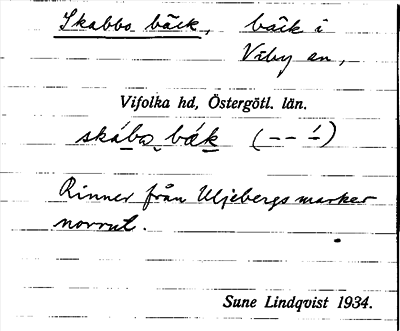 Skabbo bäck, bäck i
Viby sn,
Vifolka hd, Östergötl. län.
skábo, bäk (– – –́)
Rinner från Uljebergs marker
norrut.
Sune Lindqvist 1934.